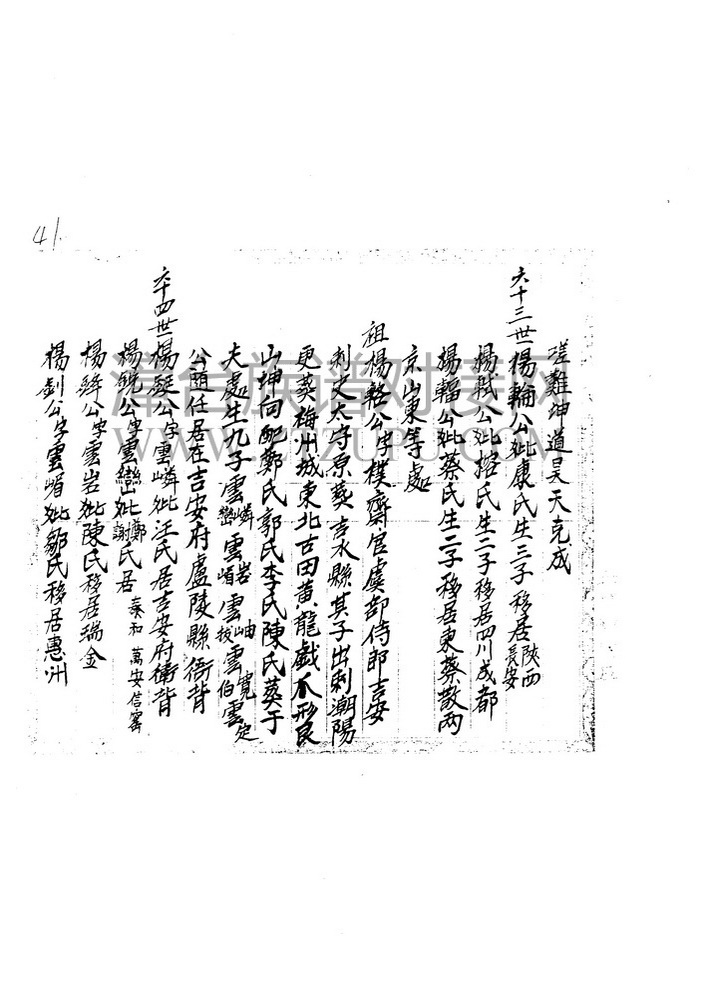 41
瑳難坤道昊天克成
六十三世楊輪公妣康氏生三子移居陝西長安
楊軾公妣格氏生二子移居四川成都
楊輻公妣蔡氏生二子移居東蔡散两
京山東等處
祖楊輅公字樸齋官虞部侍郎吉安
刺史太守原葵吉水縣其子出刺潮陽
更葵梅州城東北古田黄龍戯爪形艮
山坤向配鄭氏郭氏李氏陳氏葵于
夫處生九子雲嶙巒雲岩嵋雲岫拔雲寬伯雲定
公隨任居在吉安府盧陵縣衙背
六十四世楊鋋公字雲嶙妣汪氏居吉安府衛背
楊銳公字雲巒妣鄭謝氏居泰和萬安信寗
楊鋒公字雲岩妣陳氏移居瑞金
楊釗公字雲嵋妣鄒氏移居惠州
漳台族谱对接网
WWW.ZTZUPU.COM